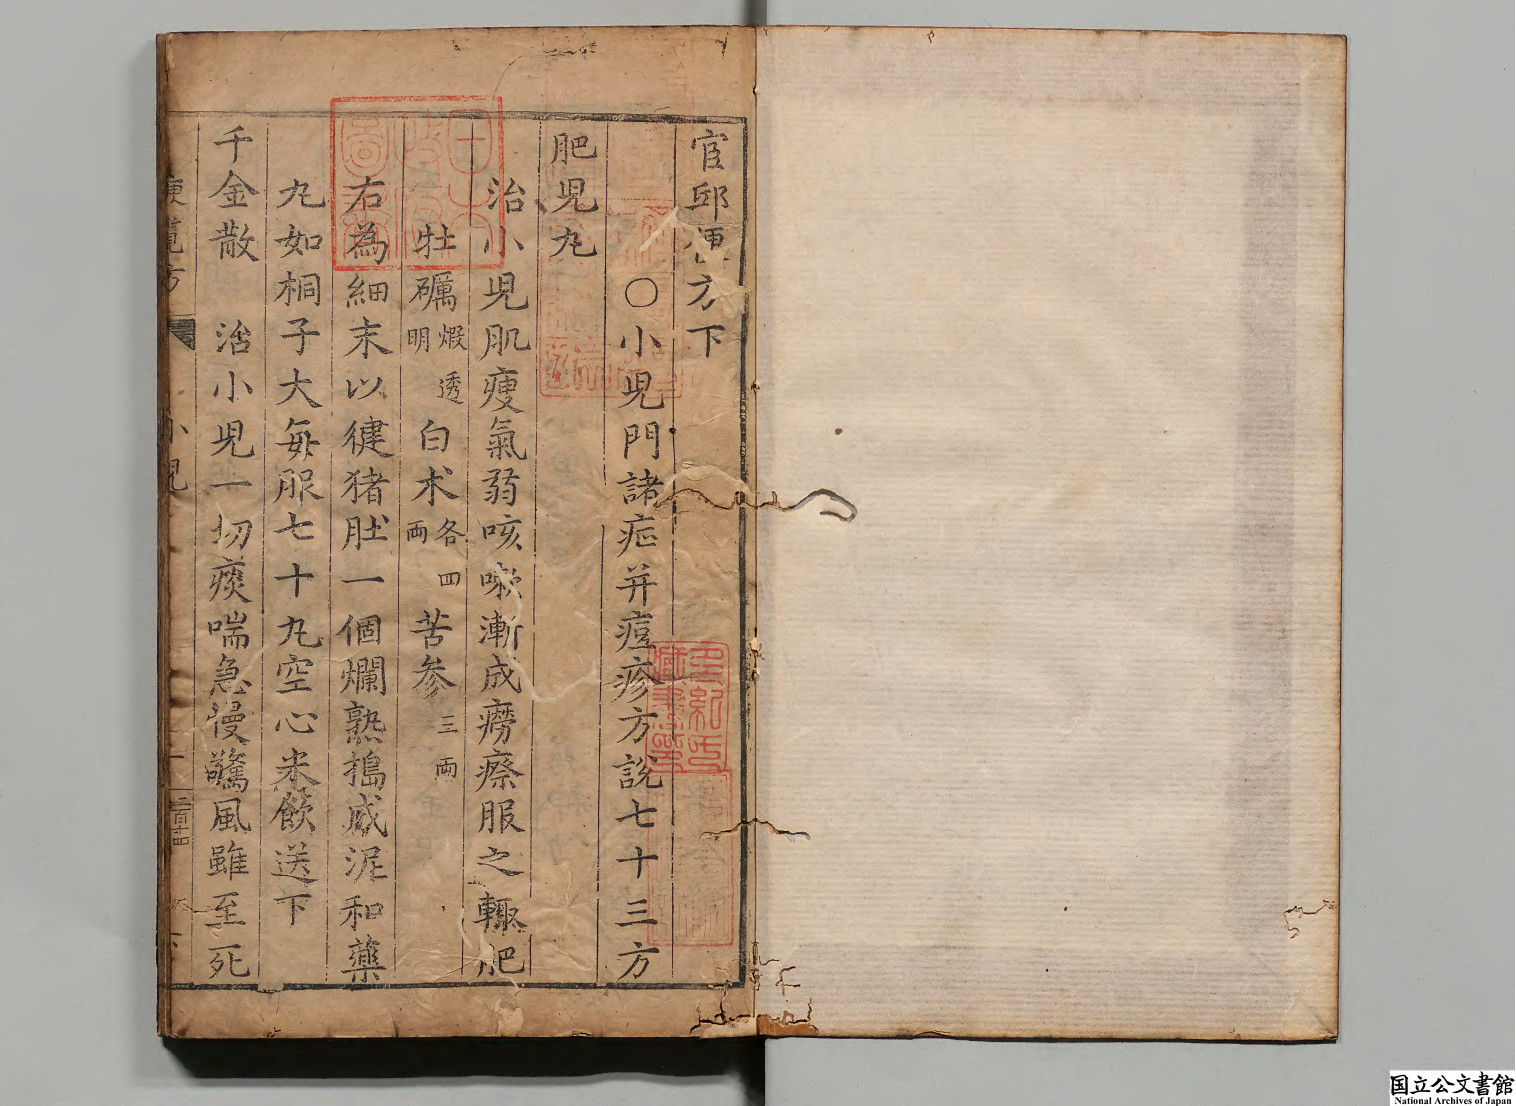 宦邱便方下
〇小兒門諸症并痘疹方說七十三方
肥兒丸
治小兒肌瘦氣弱咳嗽漸成癆瘵服之輙肥
牡礪煆透明白朮各四兩苦参三兩
右為細末以健猪肚一個爛熟搗成泥和藥
丸如桐子大每服七十丸空心米飲送下
千金散 治小兒一切痰喘急慢驚風雖至死
便覽方 小兒 二百十四
国立公文書館
National Archives of Japan